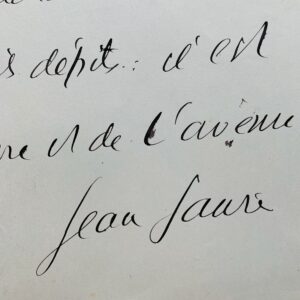 de
is dépits : il est
re et de l'avenir
Jean Jaurè